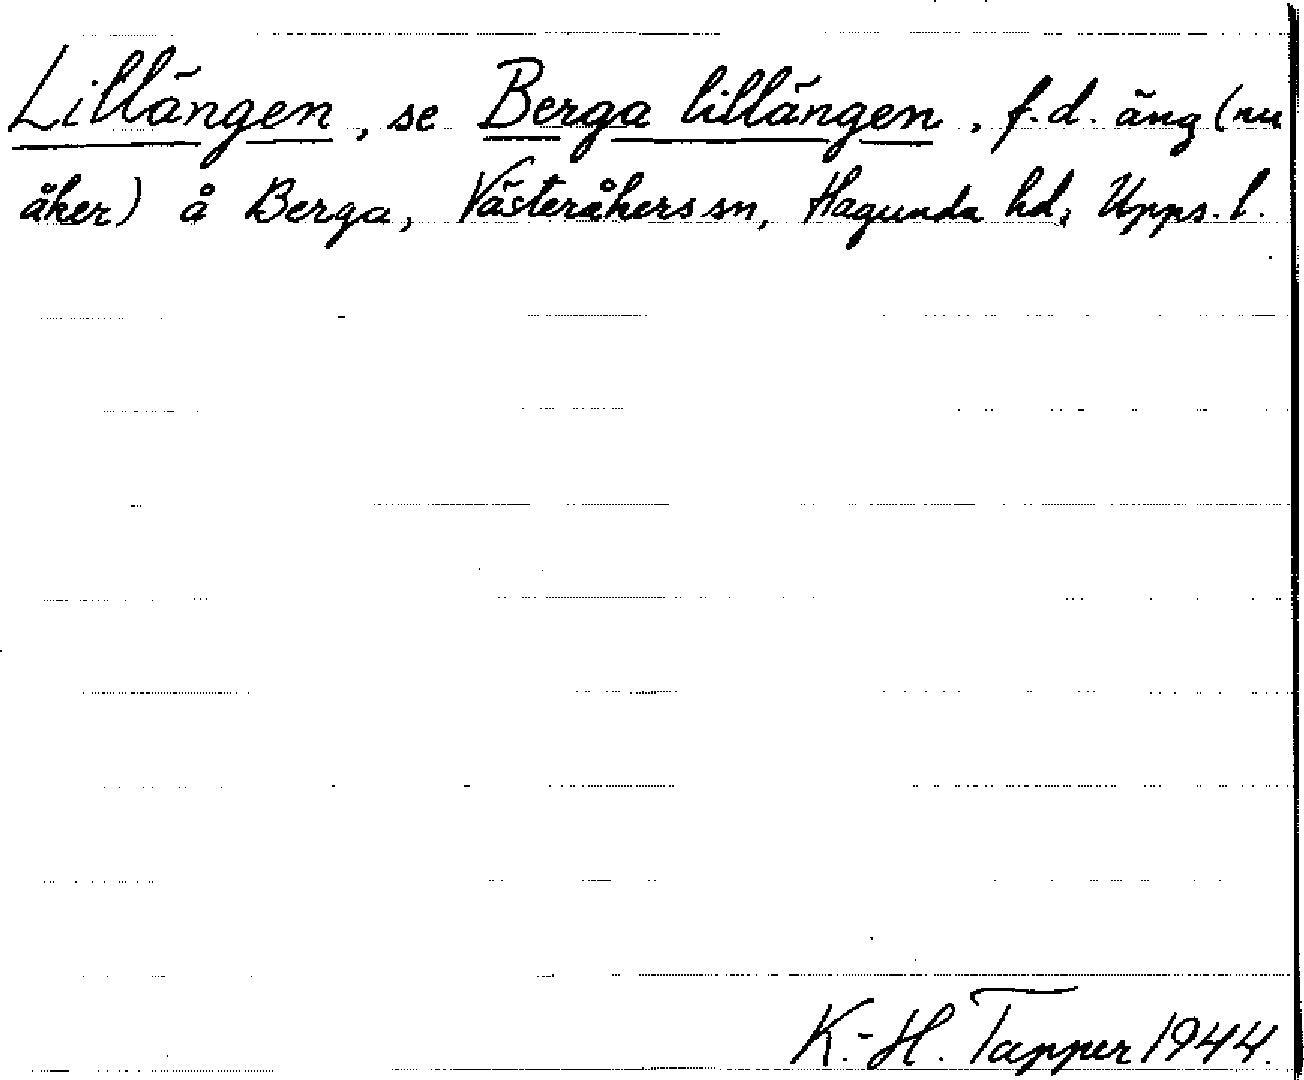 Lillängen, se Berga lillängen, f.d. äng (nu
åker) å Berga, Västeråkers sn, Hagunda hd, Upps. l.
K.-H. Tapper 1944.